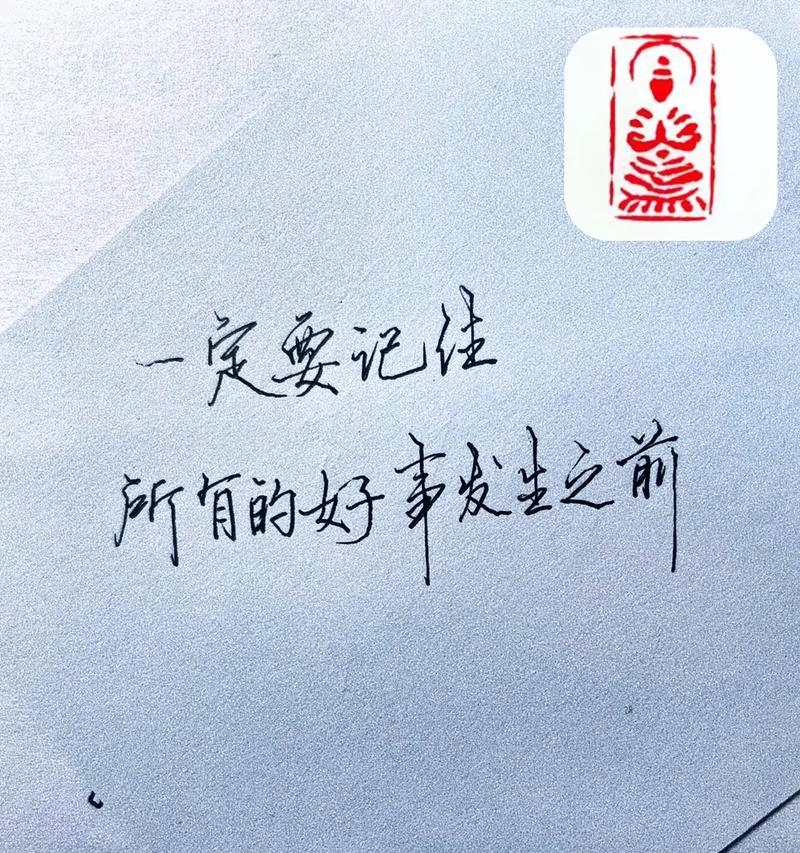 一定要记住
所有的好事发生之前